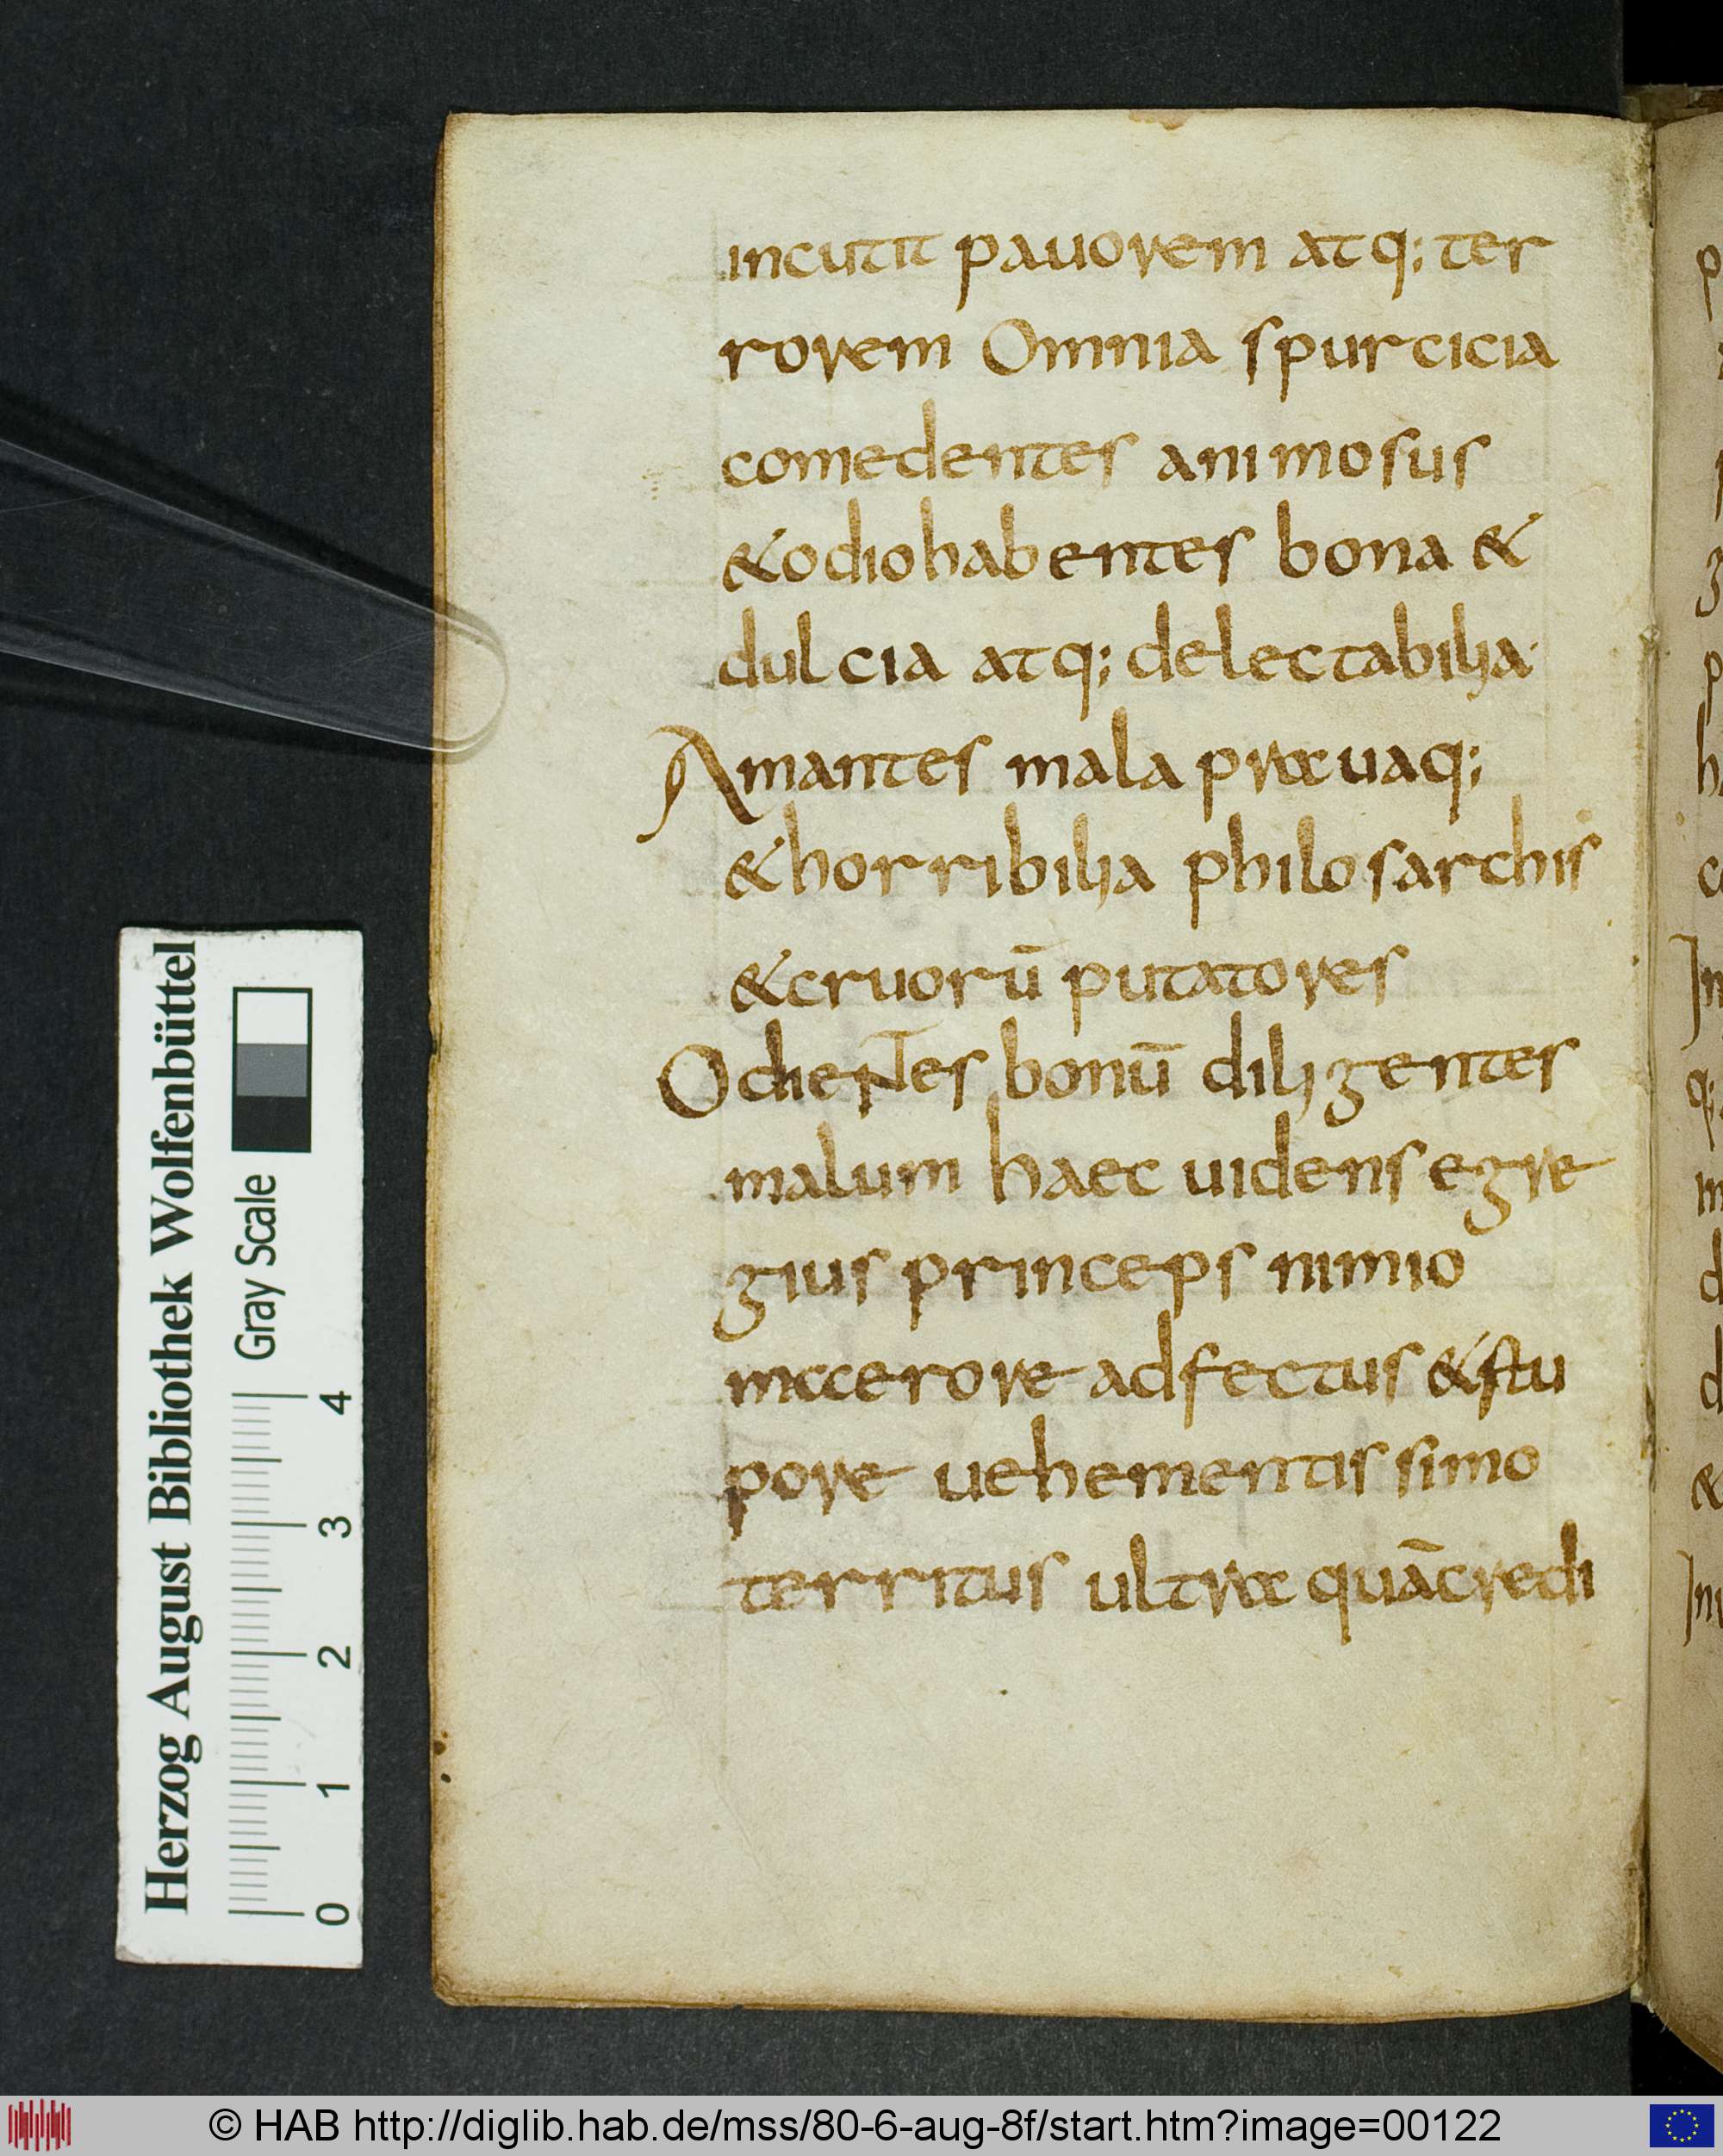 incutit pauorem atq; ter
rorem Omnia spurcicia
comedentes animosus
& odio habentes bona &
dulcia atq; delectabilia·
Amantes mala prauaq;
& horribilia philosarchis
& cruorū putatores
Odientes bonū diligentes
malum haec uidens egre
gius princeps nimio
mcerore adfectus & stu
pore uehementissimo
territus ultra quā credi
Herzog August Bibliothek Wolfenbüttel
Gray Scale
0 1 2 3 4
© HAB http://diglib.hab.de/mss/80-6-aug-8f/start.htm?image=00122